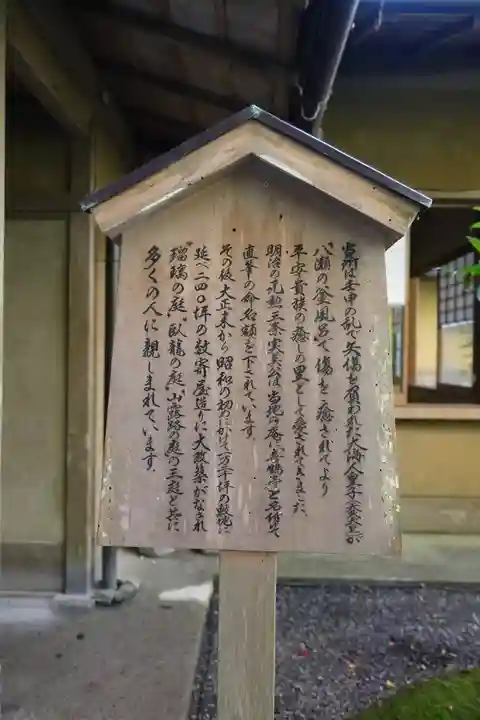 当所は壬申の乱で矢傷を負われた大海人皇子(天武天皇)が
八瀬の〝釜風呂〟で傷を癒されてより
平安貴族の癒しの里として愛されてきました。
明治の元勲三条実美公は当地の庵に〝喜鶴亭〟と名付けて
直筆の命名額を下されています。
その後大正末から昭和の初めにかけて一万千坪の敷地に
延べ二四〇坪の数寄屋造りに大改築がなされ
〝瑠璃の庭〟〝臥龍の庭〟〝山露路の庭〟の三庭と共に
多くの人に親しまれています。